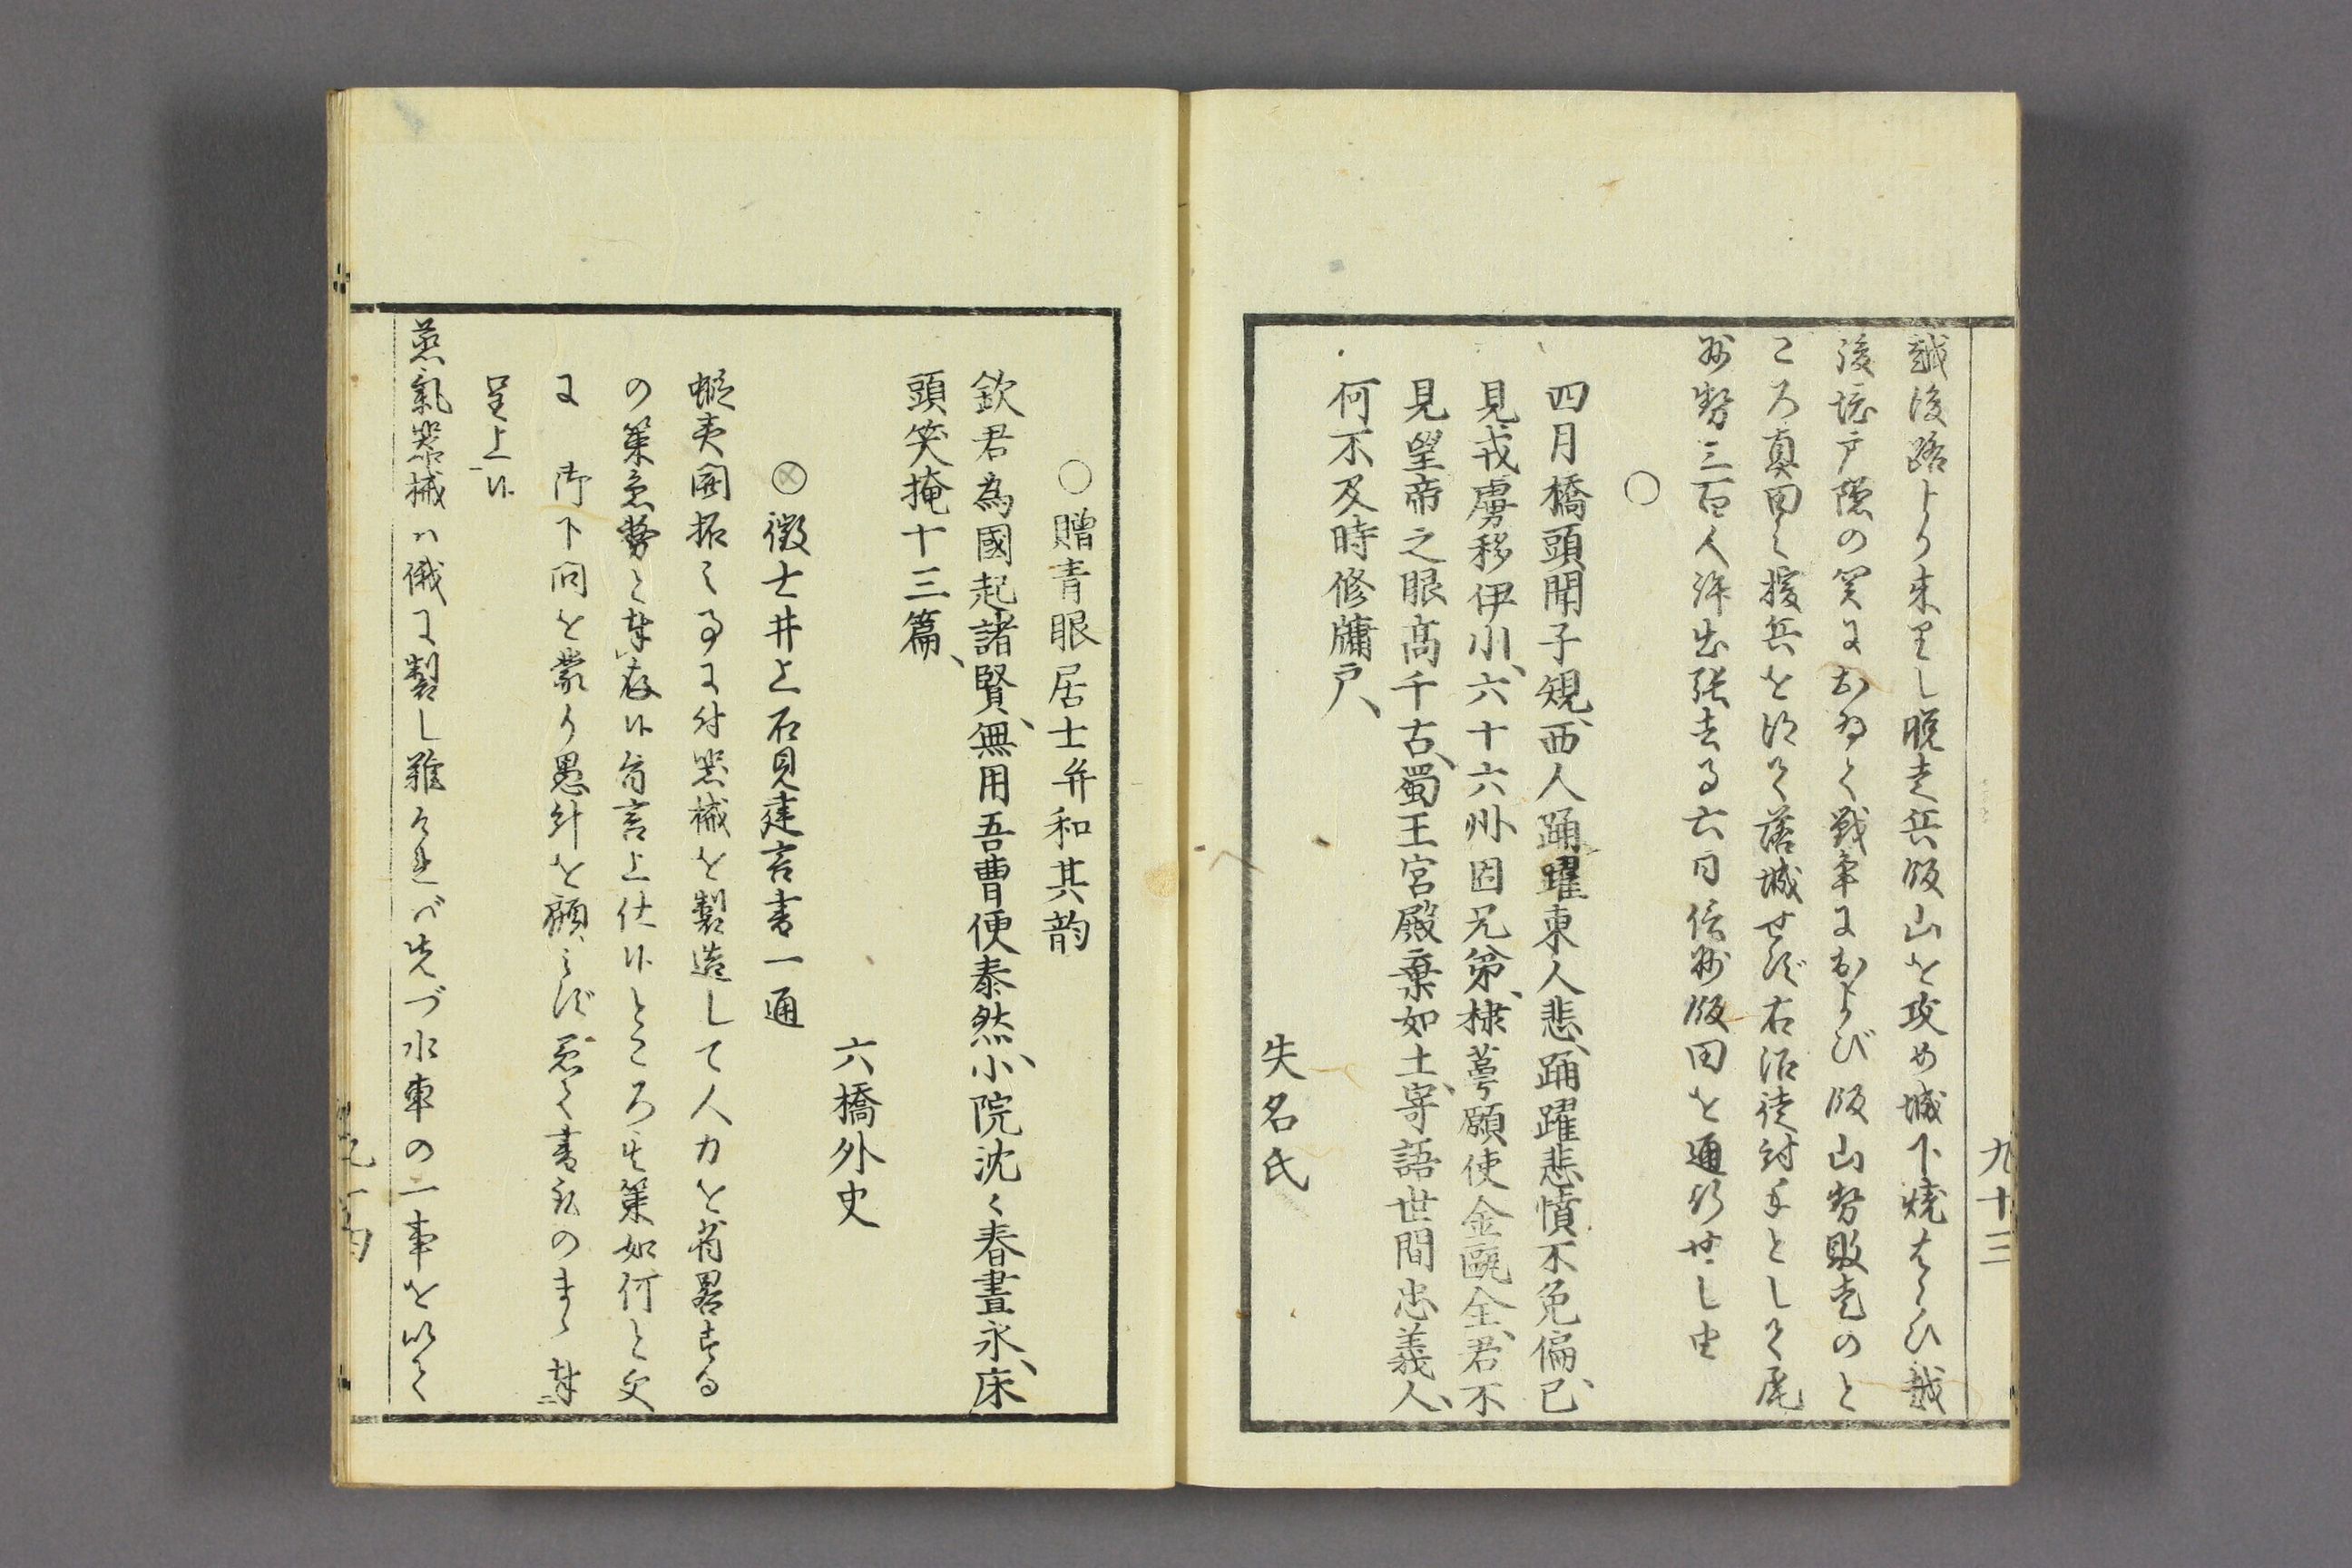 九十三
越後路より来りし脱走兵飯山を攻め城下焼はらひ越
後境戸隠の関におゐて戦争におよび飯山勢敗走のと
ころ真田之援兵を得て落城せず右浪徒討手として尾
州勢三百人許出張去る六日信州飯田を通行せし由
○
四月橋頭聞子規、西人踊躍東人悲、踊躍悲憤不免偏、已
見戎虜移伊小、六十六州因兄弟、棣萼願使金甌全、君不
見望帝之眼高千古、蜀王宮殿棄如土、寄語世間忠義人、
何不及時修牖戸、
失名氏
○贈青眼居士并和其韵
欽君為國起諸賢、無用吾曹便泰然、小院沈々春晝永、床
頭笑掩十三篇、
六橋外史
○徴士井上石見建言書一通
蝦夷開拓之事に付器械を製造して人力を省畧する
の策急務と奉存候旨言上仕候ところ其策如何と父
に 御下問を蒙り愚計を顧みず忌々書記のまゝ奉
呈上候
蒸氣器械ハ俄に製し難けれバ先づ水車の一事を以て